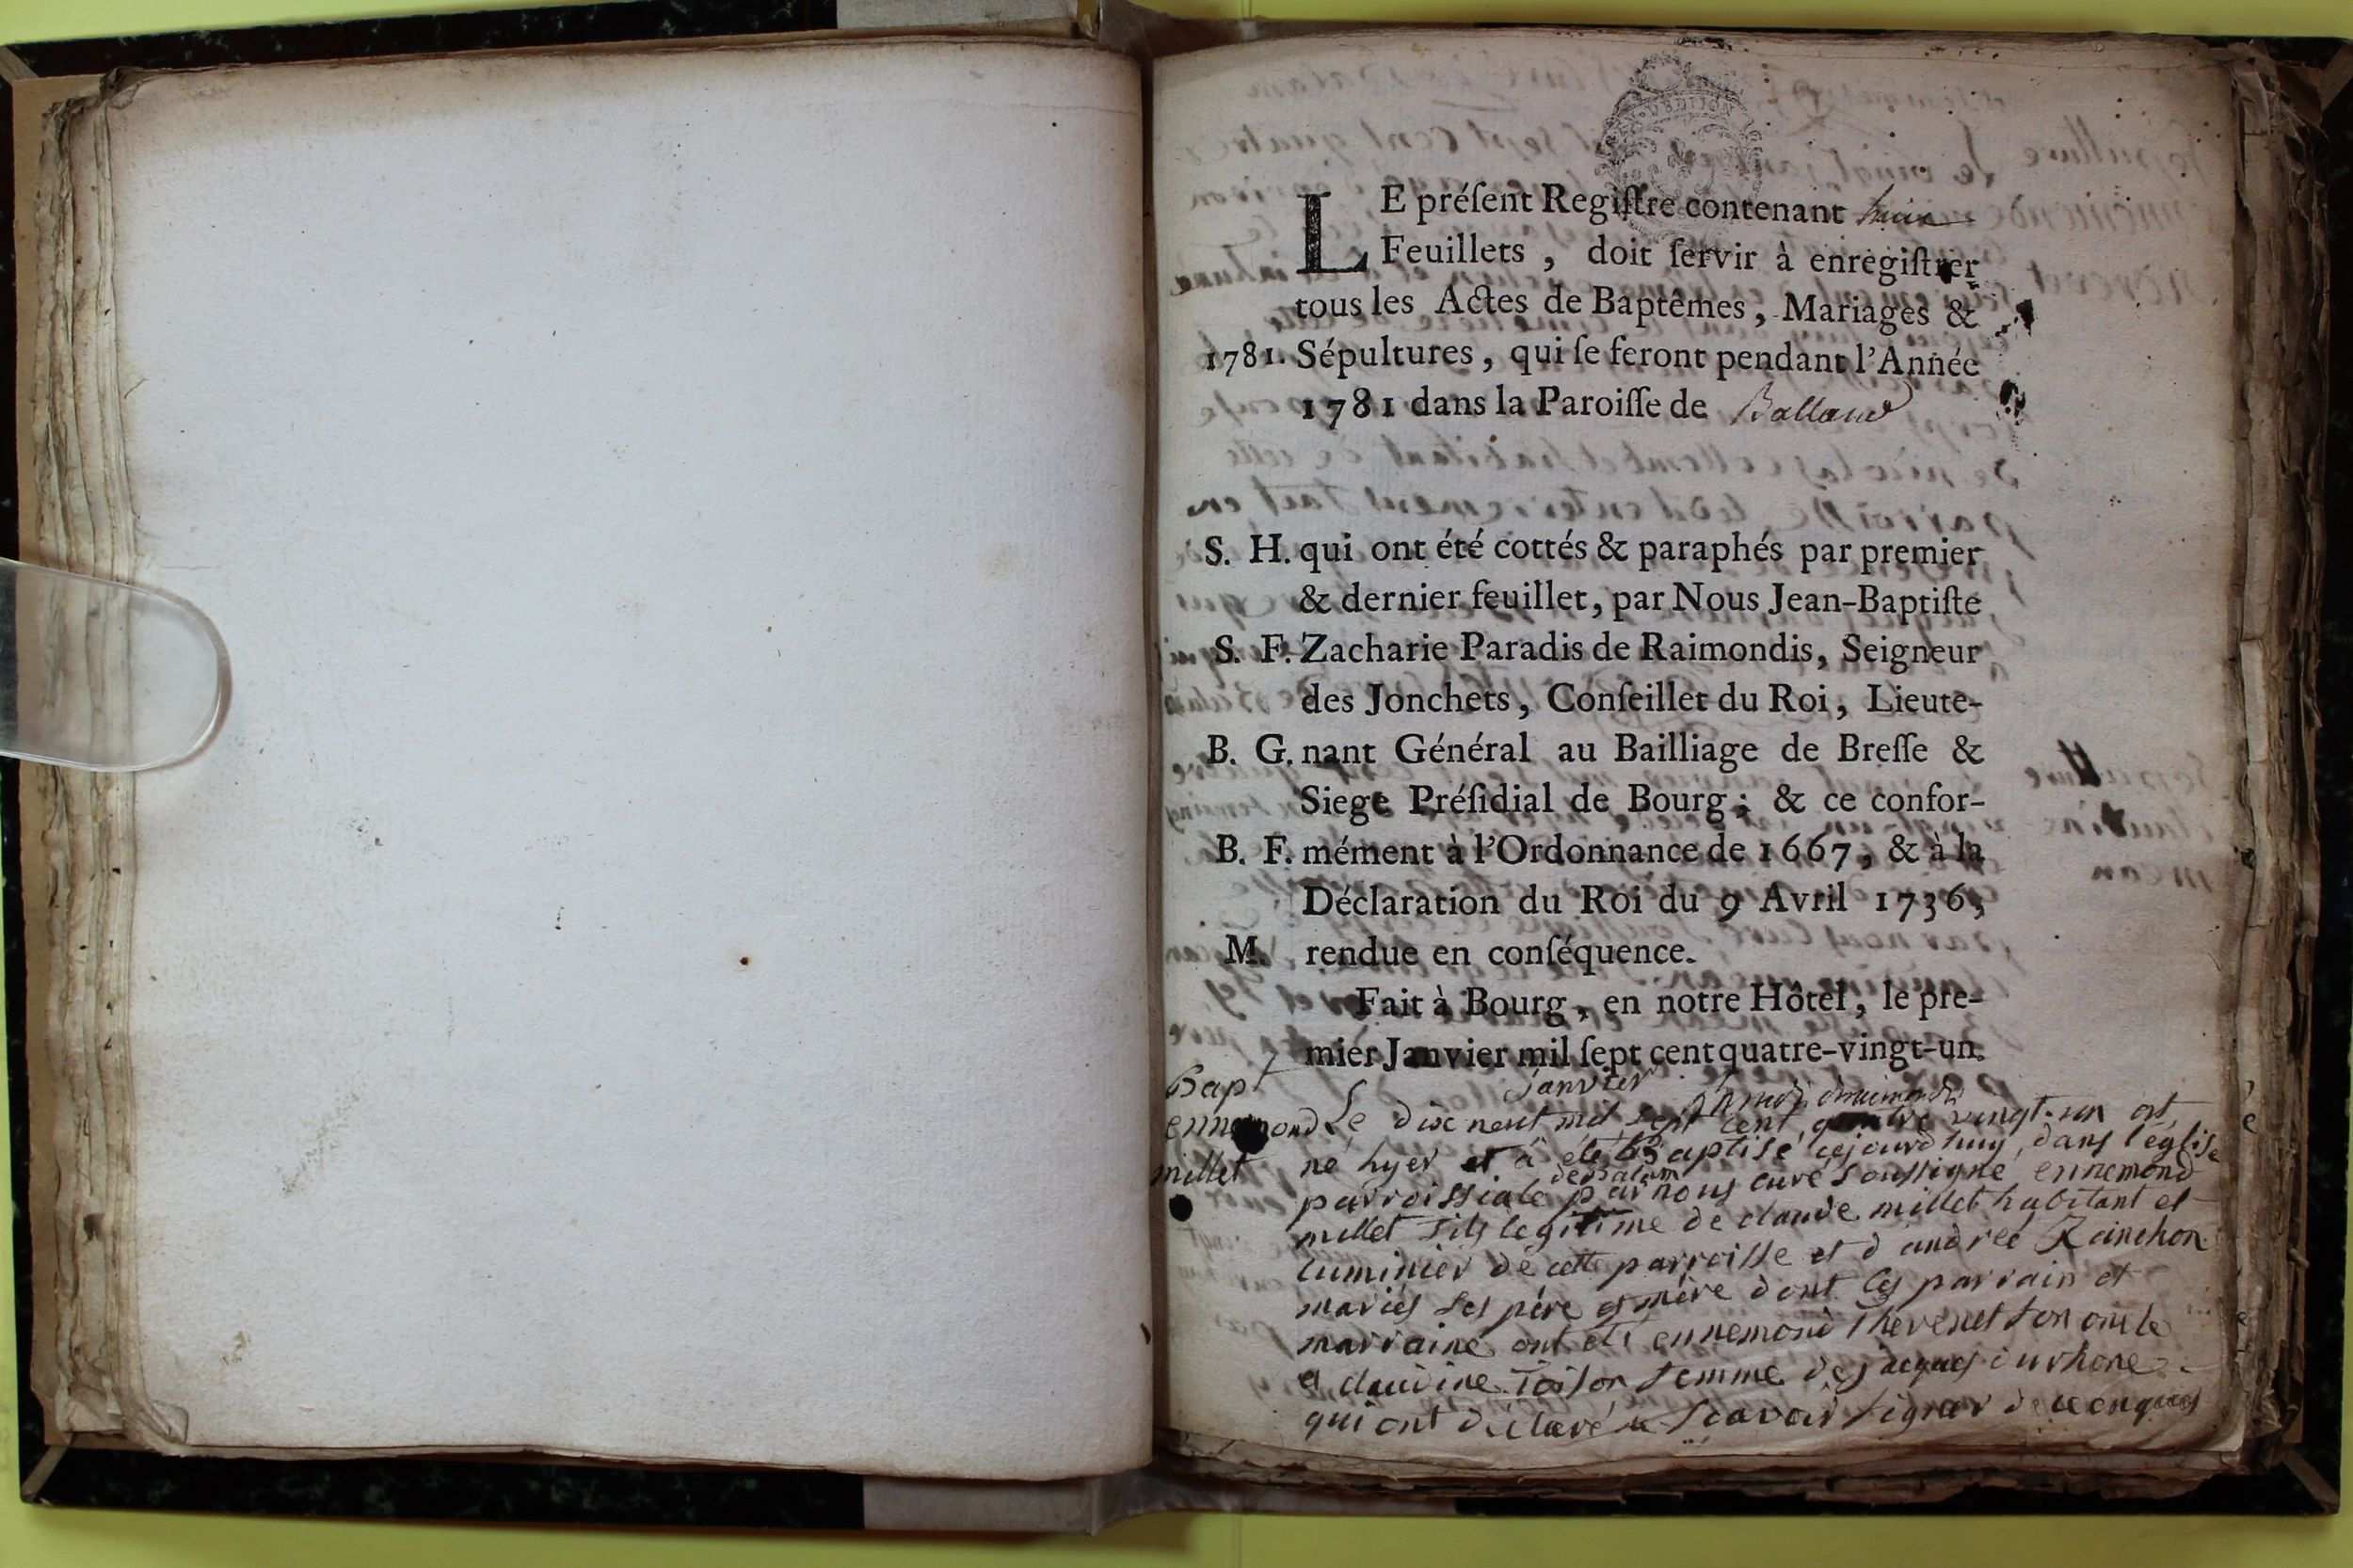 LE préſent Regiſtre contenant huit
Feuillets, doit ſervir à enregiſtrer
tous les Actes de Baptêmes, Mariages &
1781. Sépultures, qui ſe feront pendant l'Année
1781 dans la Paroiſſe de Balland
S. H. qui ont été cottés & paraphés par premier
& dernier feuillet, par Nous Jean-Baptiſte
S. F. Zacharie Paradis de Raimondis, Seigneur
des Jonchets, Conſeiller du Roi, Lieute-
B. G. nant Général au Bailliage de Breſſe &
Siege Préſidial de Bourg; & ce confor-
B. F. mément à l'Ordonnance de 1667, & à la
Déclaration du Roi du 9 Avril 1736,
M. rendue en conſéquence.
Fait à Bourg, en notre Hôtel, le pre-
mier Janvier mil ſept cent quatre-vingt-un.
Bapt
ennemond
millet
janvier
Le dix neuf mil sept cent quatre vingt-un est
né hyer et a été Baptisé cejourdhuy, dans l'église
parroissiale de Balan par nous curé soussigné ennemond
millet fils legitime de claude millet habitant et
luminier de cette parroisse et d'andrée Rainchon
mariés ses père et mère dont les parrain et
marraine ont été ennemond Thevenet son oncle
et claudine Toison femme de jacques durhone
qui ont déclaré ne scavoir signer de ce enquis